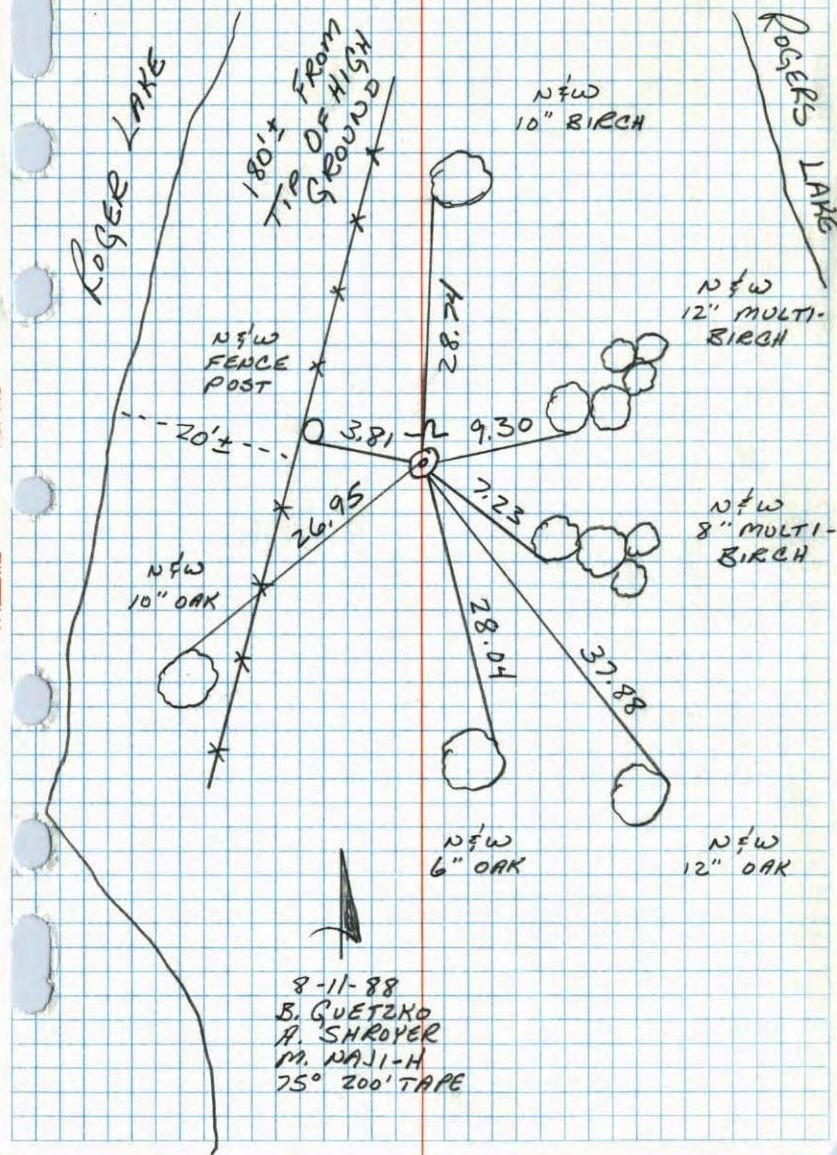 ROGER LAKE
180'± FROM
TIP OF HIGH
GROUND
N & W
10" BIRCH
ROGERS LAKE
28.74
N & W
12" MULTI-
BIRCH
N & W
FENCE
POST
20'±
3.81
9.30
26.95
7.23
N & W
8" MULTI-
BIRCH
N & W
10" OAK
28.04
37.88
N & W
6" OAK
N & W
12" OAK
8-11-88
B. GUETZKO
A. SHROYER
M. NAJI-H
75° 200' TAPE